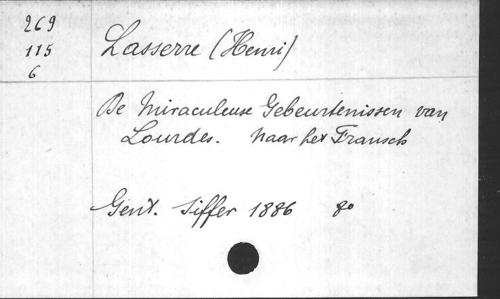 269
115
6
Lasserre (Henri)
De Miraculeuse Gebeurtenissen van
Lourdes. Naar het Fransch
Gent. Siffer 1886 8º